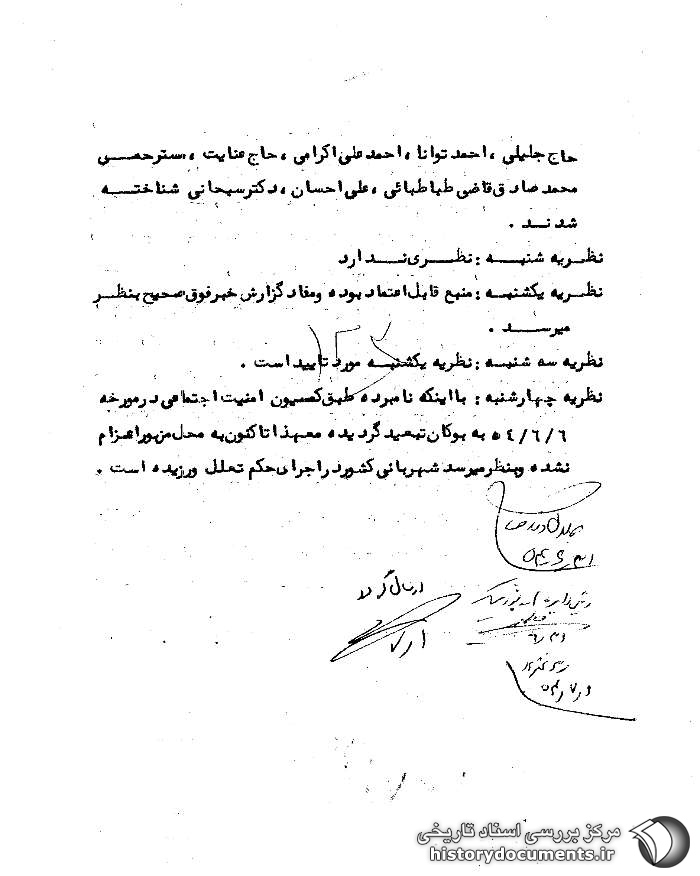 حاج جلیلی ، احمد توانا ، احمد علی اکرامی ، حاج عنایت ، مستر حمصی
محمد صادق قاضی طباطبائی ، علی احسان ، دکتر سبحانی شناختـــه
شدنـد .
نظـریه شنبـــه : نظـــری نـــدارد
نظریه یکشنبـه : منبع قابل اعتماد بوده و مفاد گزارش خبر فوق صحیح بنظـر
میرســد .
نظریه سه شنبه : نظریه یکشنبـه مورد تایید است .
نظریه چهارشنبه : با اینکه نامبرده طبق کمسیون امنیت اجتماعی در مورخه
۵۴/۶/۶ به بوکان تبعید گردیده معهذا تاکنون به محل مزبور اعزام
نشده و بنظر میرسد شهربانی کشور در اجرای حکم تعلل ورزیده است .
۱۲
۵۴٫۶٫۳۱
ارسال گردد
۷٫۱
۵۴٫۷٫۶
مرکز بررسی اسناد تاریخی
historydocuments.ir